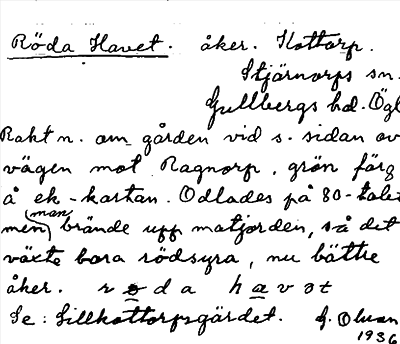 Röda Havet. åker. Kottorp.
Stjärnorps sn.
Gullbergs hd. Ögl
Rakt n. om gården vid s. sidan av
vägen mot Ragnorp, grön färg
å ek-kartan. Odlades på 80-talet
men (man) brände upp matjorden, så det
växte bara rödsyra, nu bättre
åker. r ø d a h a v ə t
Se: Lillkottorpsgärdet. G. Olsson
1936